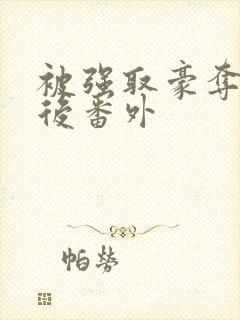 被强取豪夺
后番外
帕劳